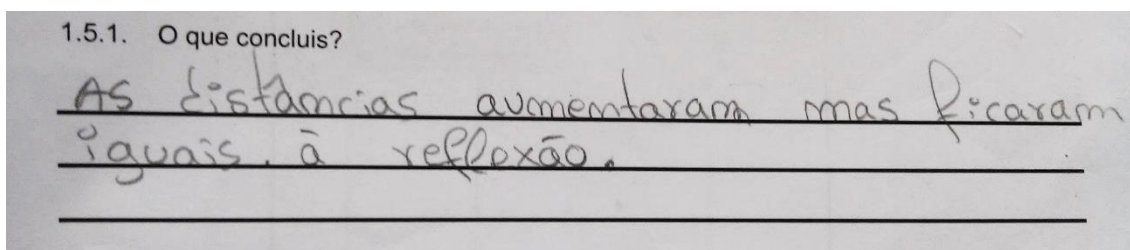 1.5.1. O que concluis?
As distâncias aumentaram mas ficaram
iguais. à reflexão.